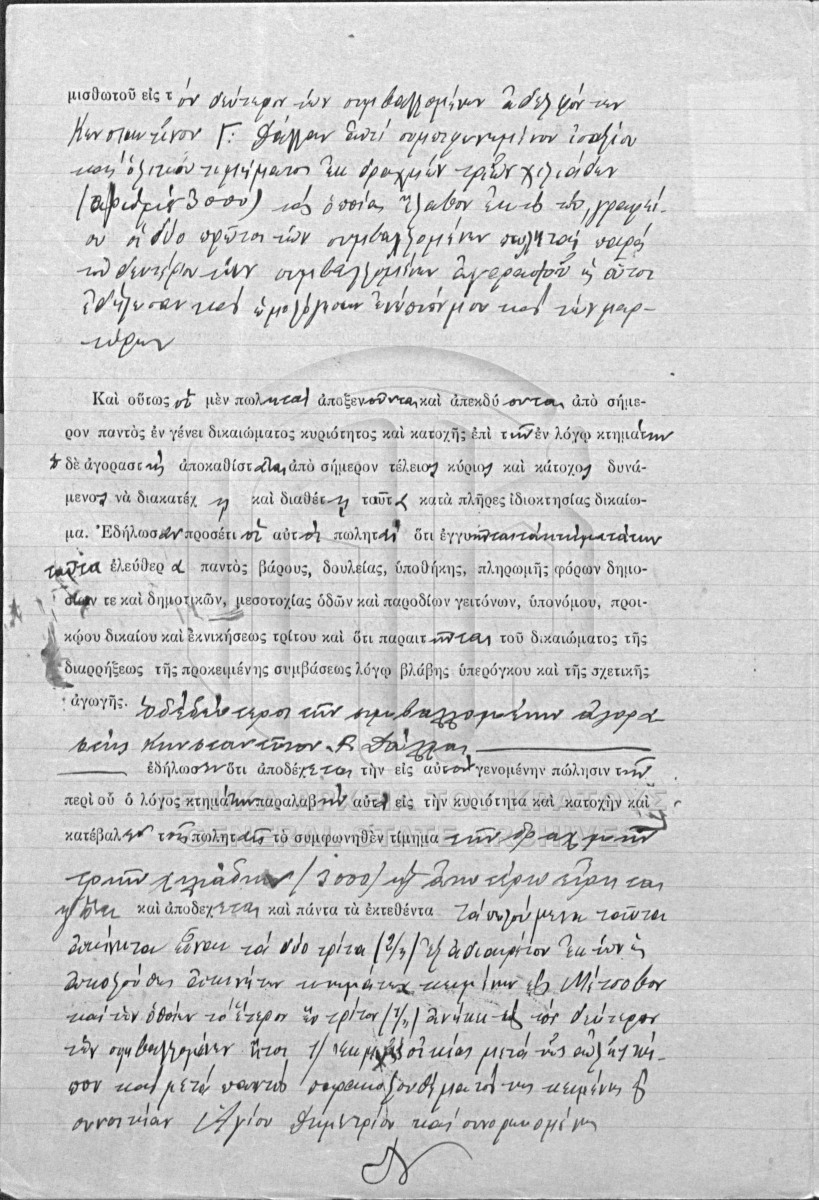 μισθωτοῦ εἰς τὸν δεύτερον τῶν συμβαλλομένων ἀδελφόν των
Κωνσταντῖνον Γ. Δάλλαν ἀντί συμπεφωνημένου
καί ὁλικοῦ τιμήματος ἐκ δραχμῶν τριῶν χιλιάδων
(ἀριθμός 3000) τάς ὁποίας ἔλαβον ἐκτός τοῦ γραφεί-
ου οἱ δύο πρῶτοι τῶν συμβαλλομένων πωληταί παρά
τοῦ δευτέρου τῶν συμβαλλομένων ἀγοραστοῦ ὡς οὗτοι
ἐδήλωσαν καί ὡμολόγησαν ἐνώπιόν μου καί τῶν μαρ-
τύρων
Καὶ οὕτως οἱ μὲν πωληταί ἀποξενοῦνται καὶ ἀπεκδύονται ἀπὸ σήμε-
ρον παντὸς ἐν γένει δικαιώματος κυριότητος καὶ κατοχῆς ἐπὶ τῶν ἐν λόγῳ κτημάτων
ὁ δὲ ἀγοραστής ἀποκαθίσταται ἀπὸ σήμερον τέλειος κύριος καὶ κάτοχος δυνά-
μενος νὰ διακατέχῃ καὶ διαθέτῃ ταῦτα κατὰ πλῆρες ἰδιοκτησίας δικαίω-
μα. Ἐδήλωσαν προσέτι οἱ αὐτοί πωληταί ὅτι ἐγγυῶνται τά κτήματα των
ταῦτα ἐλεύθερα παντὸς βάρους, δουλείας, ὑποθήκης, πληρωμῆς φόρων δημο-
σίων τε καὶ δημοτικῶν, μεσοτοχίας ὁδῶν καὶ παροδίων γειτόνων, ὑπονόμου, προι-
κῴου δικαίου καὶ ἐκνικήσεως τρίτου καὶ ὅτι παραιτοῦνται τοῦ δικαιώματος τῆς
διαρρήξεως τῆς προκειμένης συμβάσεως λόγῳ βλάβης ὑπερόγκου καὶ τῆς σχετικῆς
ἀγωγῆς. Ὁ δέ δεύτερος τῶν συμβαλλομένων ἀγορα
στής Κωνσταντῖνος Γ. Δάλλας
ἐδήλωσεν ὅτι ἀποδέχεται τὴν εἰς αὐτόν γενομένην πώλησιν τῶν
περὶ οὗ ὁ λόγος κτημάτων παραλαβών αὐτά εἰς τὴν κυριότητα καὶ κατοχὴν καὶ
κατέβαλεν τοῖς πωληταῖς τὸ συμφωνηθὲν τίμημα τῶν δραχμῶν
τριῶν χιλιάδων (3000) ὡς ἀνωτέρω εἴρηται
καὶ ἀποδέχεται καὶ πάντα τὰ ἐκτεθέντα τά πωλούμενα ταῦτα
ἀκίνητα εἶναι τά δύο τρίτα (2/3) ἐξ ἀδιαιρέτου ἐκ τῶν ἑξῆς
ἀκολούθων ἀκινήτων κτημάτων κειμένων εἰς Μέτσοβον
καί τῶν ὁποίων τό ἕτερον ἕν τρίτον (1/3) ἀνήκει εἰς τόν δεύτερον
τῶν συμβαλλομένων ἤτοι 1) Ἐκ μιᾶς οἰκίας μετά τῆς αὐλῆς κή-
που καί μετά παντός παρακολουθήματός της κειμένης ἐν
συνοικίᾳ Ἁγίου Δημητρίου καί συνορευομένης